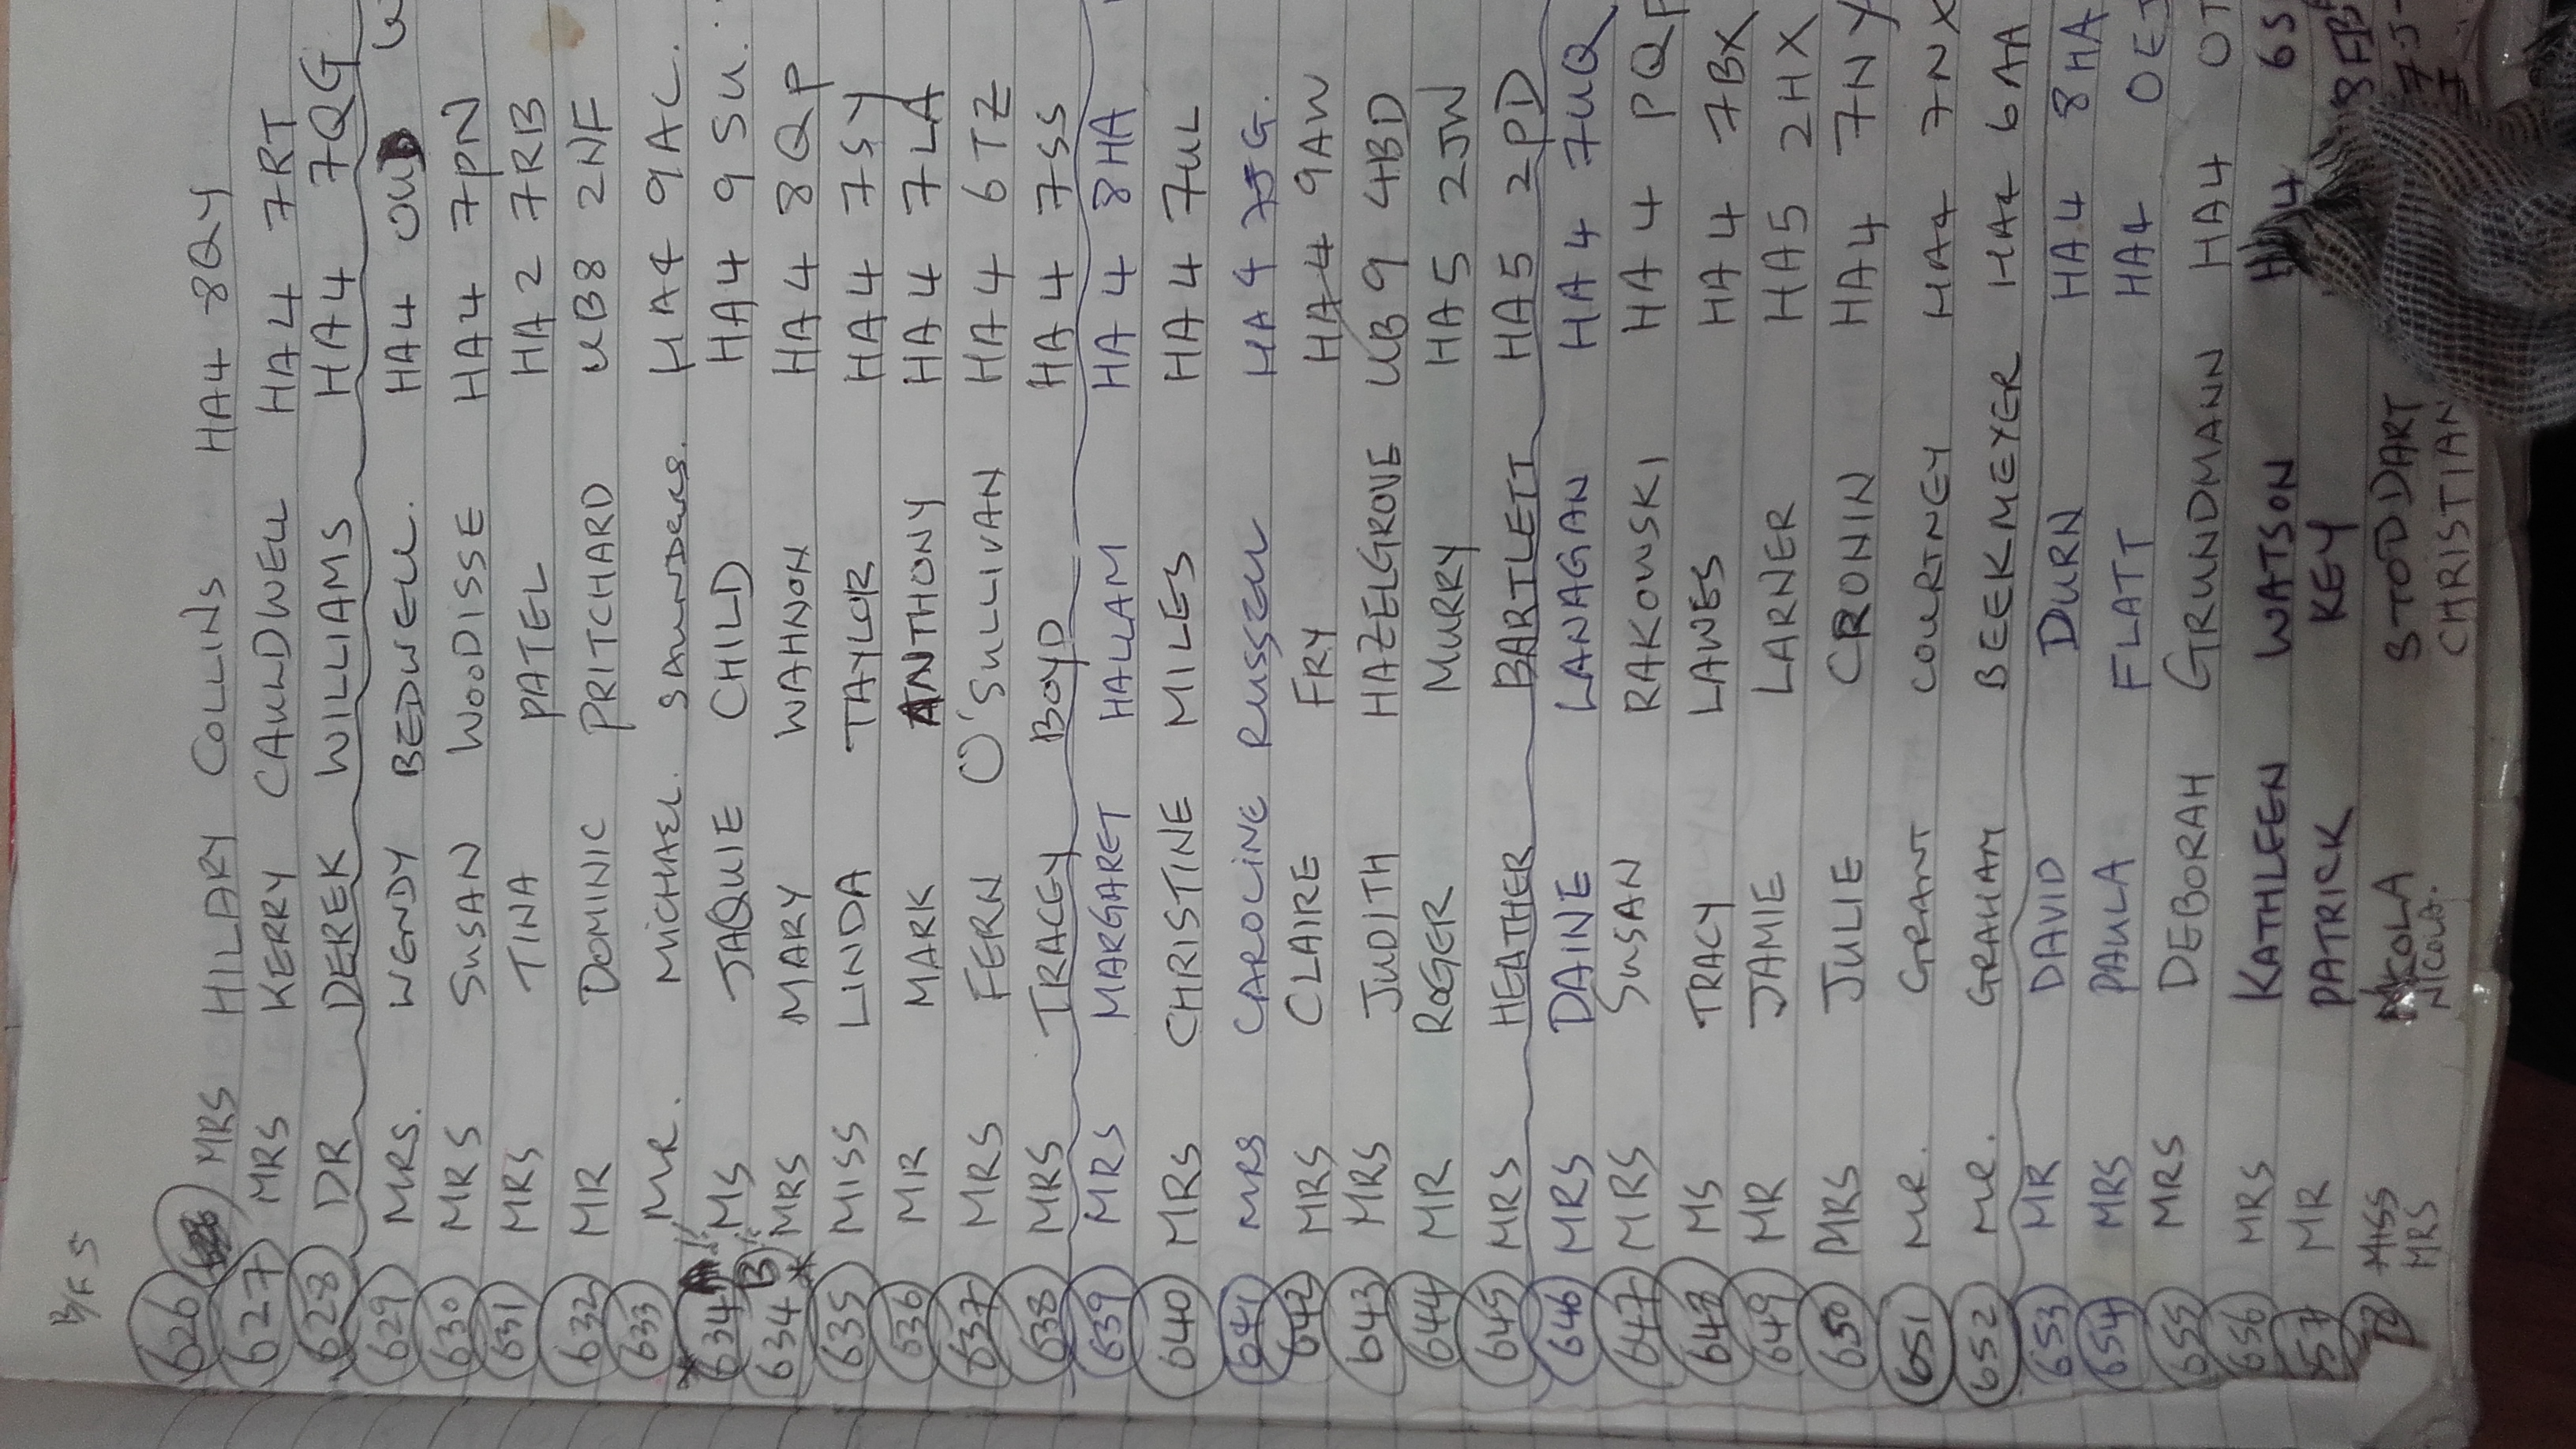 B/F 5
626 MRS HILARY COLLINS HA4 8QY
627 MRS KERRY CAULDWELL HA4 7RT
628 DR DEREK WILLIAMS HA4 7QG
629 MRS. WENDY BEDWELL. HA4 OUD
630 MRS SUSAN WOODISSE HA4 7PN
631 MRS TINA PATEL HA2 7RB
632 MR DOMINIC PRITCHARD UB8 2NF
633 MR. MICHAEL. SAUNDERS. HA4 9AC.
634 A MS JAQUIE CHILD HA4 9SU.
634 B MRS MARY WAHNON HA4 8QP
635 MISS LINDA TAYLOR HA4 7SY
636 MR MARK ANTHONY HA4 7LA
637 MRS FERN O'SULLIVAN HA4 6TZ
638 MRS TRACEY BOYD HA4 7SS
639 MRS MARGARET HALLAM HA4 8HA
640 MRS CHRISTINE MILES HA4 7UL
641 MRS CAROLINE RUSSELL HA4 7JG.
642 MRS CLAIRE FRY HA4 9AW
643 MRS JUDITH HAZELGROVE UB9 4BD
644 MR ROGER MURRY HA5 2JW
645 MRS HEATHER BARTLETT HA5 2PD
646 MRS DAINE LANAGAN HA4 7UQ
647 MRS SUSAN RAKOWSKI HA4
648 MS TRACY LAWES HA4 7BX
649 MR JAMIE LARNER HA5 2HX
650 MRS JULIE CRONIN HA4 7NY
651 MR. GRANT COURTNEY HA4 7NX
652 MR. GRAHAM BEEKMEYER HA4 6AA
653 MR DAVID DURN HA4 8HA
654 MRS PAULA FLATT HA4 OEJ
655 MRS DEBORAH GRUNDMANN HA4 OT
656 MRS KATHLEEN WATSON 6S
57 MR PATRICK KEY 8FB
8 MISS NICOLA STODDART
MRS NICOLA. CHRISTIAN